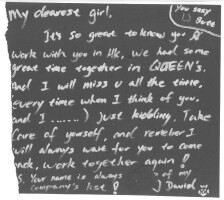 My dearest girl,
You sexy
Butt
It's so great to know you &
work with you in HK, we had some
great time together in QUEEN's.
And I will miss u all the time,
every time when I think of you.
and I ......) Just kidding. Take
Care of yourself, and
will always wait for you to come
back, work together again!
S. Your name is always of my
company's list! David